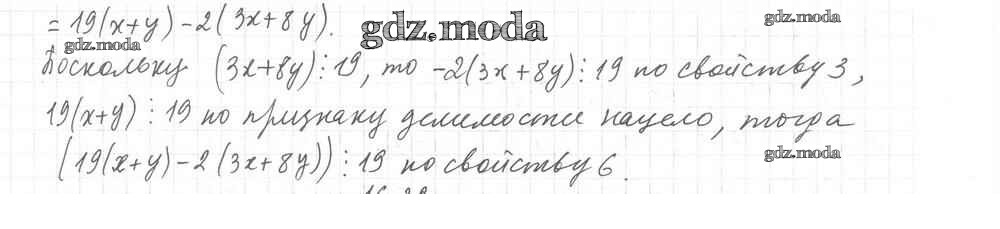 = 19(x+y) - 2(3x+8y).
gdz.moda
gdz.moda
gdz.moda
Поскольку (3x+8y)⋮19, то -2(3x+8y)⋮19 по свойству 3,
19(x+y)⋮19 по признаку делимости нацело, тогда
(19(x+y) - 2(3x+8y))⋮19 по свойству 6.
gdz.moda